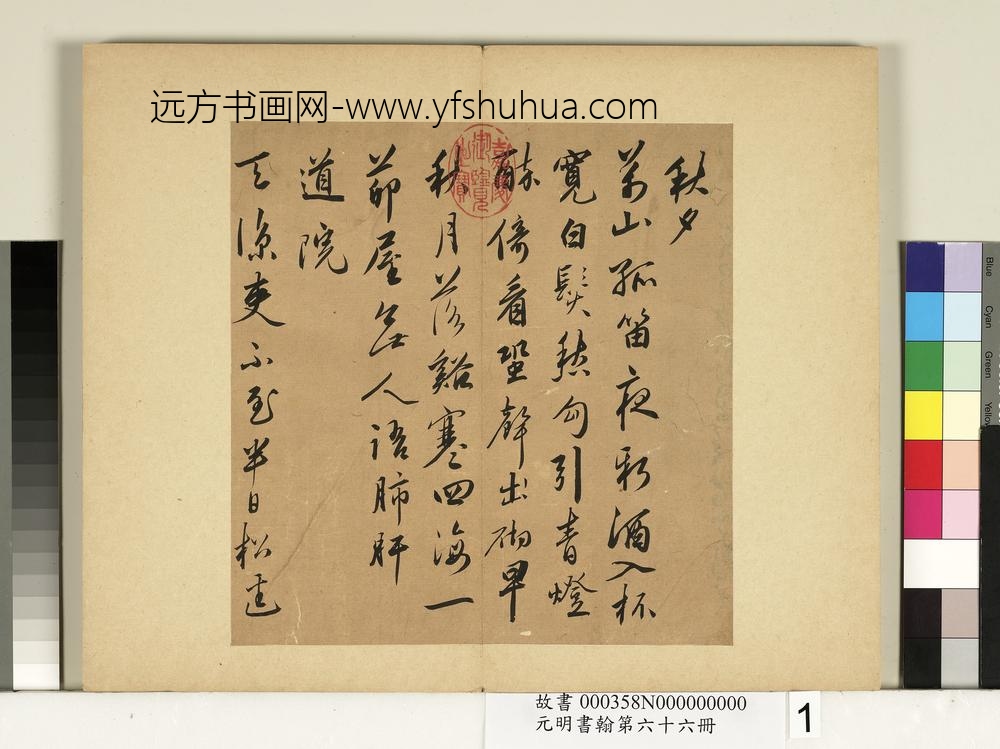 远方书画网-www.yfshuhua.com
秋夕
萬山孤笛夜新酒入杯
寬白髮愁勾引青燈
醉倚看蛩聲出砌早
秋月落谿寒四海一
茆屋無人語肺肝
道院
天涼吏不至半日松
嘉慶御覽之寶
故書 000358N000000000
元明書翰第六十六冊
1
Blue
Cyan
Green
Yellow